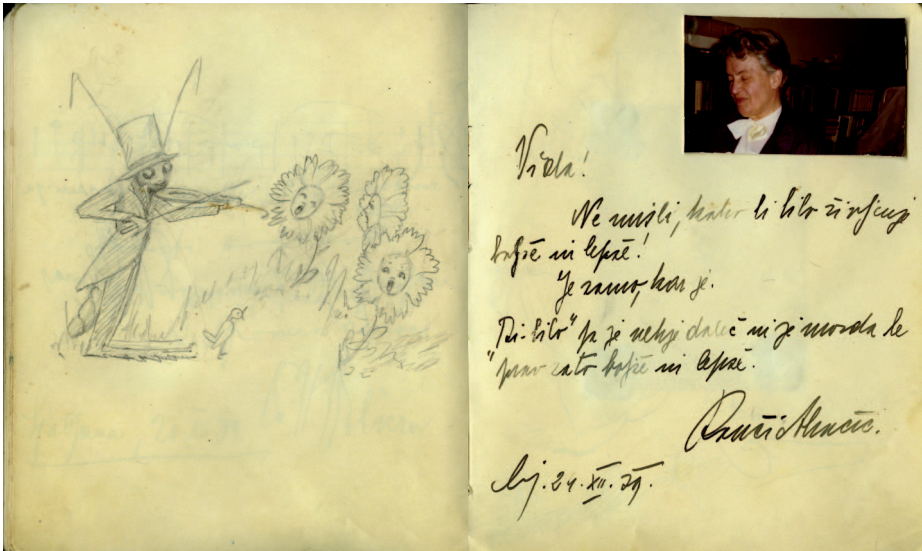 Vida!
Ne misli, kako bi bilo življenje
boljše in lepše!
Je samo, kar je.
"Bi-bilo" pa je nekje daleč in je morda le
prav zato boljše in lepše.
Lj. 24. XII. 79.